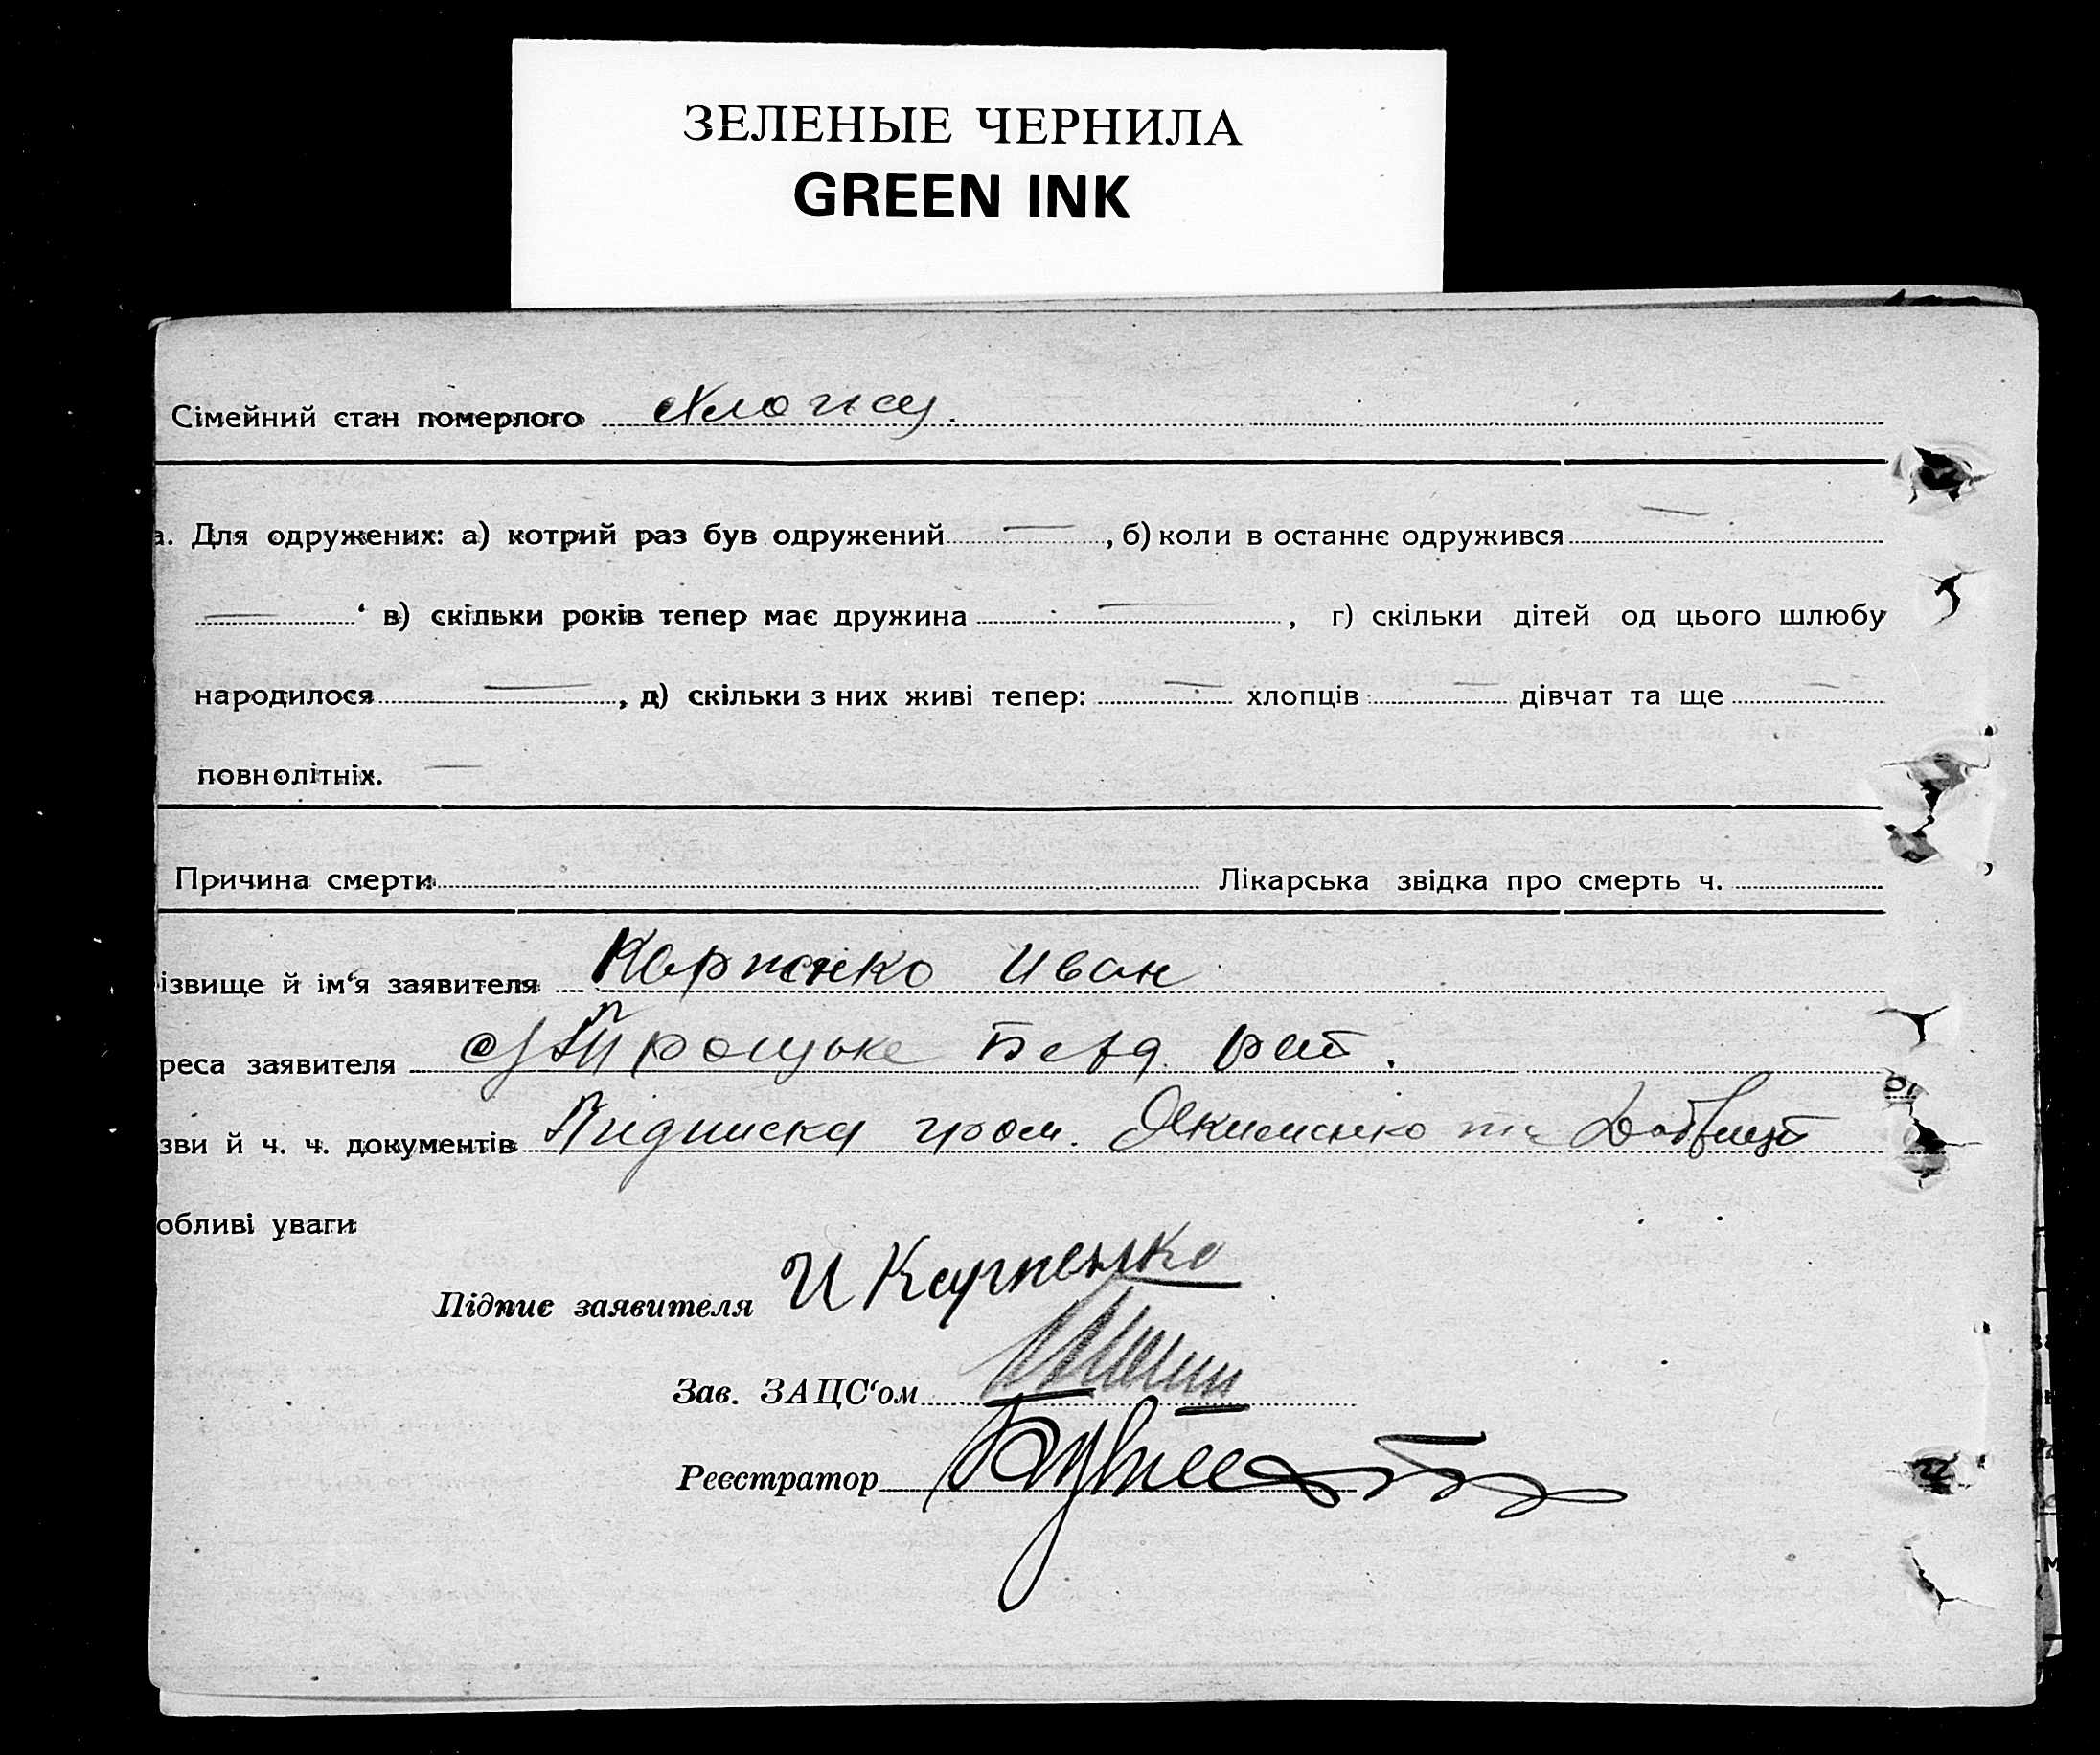 ЗЕЛЕНЫЕ ЧЕРНИЛА
GREEN INK
Сімейний стан померлого
а. Для одружених: а) котрий раз був одружений —, б) коли в останнє одружився —
— ‘ в) скільки років тепер має дружина —, г) скільки дітей од цього шлюбу
народилося —, д) скільки з них живі тепер: — хлопців — дівчат та ще —
повнолітніх. —
Причина смерти Лікарська звідка про смерть ч.
ізвище й ім‘я заявителя Карпенко Иван
реса заявителя Троцьке Берд. рай.
зви й ч. ч. документів Підписка гром. Якименко та
обливі уваги
Підпис заявителя И Карпенко
Зав. ЗАЦС‘ом
Реєстратор